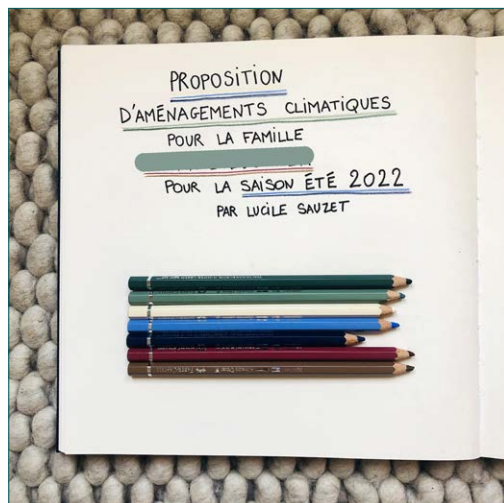 PROPOSITION
D'AMÉNAGEMENTS CLIMATIQUES
POUR LA FAMILLE
POUR LA SAISON ÉTÉ 2022
PAR LUCILE SAUZET